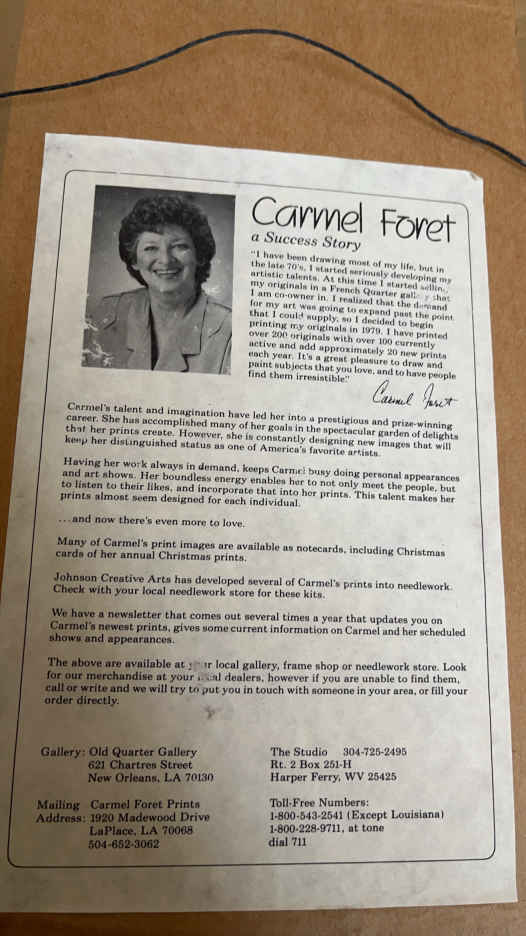 Carmel Foret
a Success Story
"I have been drawing most of my life, but in
the late 70's, I started seriously developing my
artistic talents. At this time I started
my originals in a French Quarter that
I am co-owner in. I realized that the demand
for my art was going to expand past the point
that I could supply, so I decided to begin
printing my originals in 1979. I have printed
over 200 originals with over 100 currently
active and add approximately 20 new prints
each year. It's a great pleasure to draw and
paint subjects that you love, and to have people
find them irresistible."
Carmel Foret
Carmel's talent and imagination have led her into a prestigious and prize-winning
career. She has accomplished many of her goals in the spectacular garden of delights
that her prints create. However, she is constantly designing new images that will
keep her distinguished status as one of America's favorite artists.
Having her work always in demand, keeps Carmel busy doing personal appearances
and art shows. Her boundless energy enables her to not only meet the people, but
to listen to their likes, and incorporate that into her prints. This talent makes her
prints almost seem designed for each individual.
...and now there's even more to love.
Many of Carmel's print images are available as notecards, including Christmas
cards of her annual Christmas prints.
Johnson Creative Arts has developed several of Carmel's prints into needlework.
Check with your local needlework store for these kits.
We have a newsletter that comes out several times a year that updates you on
Carmel's newest prints, gives some current information on Carmel and her scheduled
shows and appearances.
The above are available at your local gallery, frame shop or needlework store. Look
for our merchandise at your local dealers, however if you are unable to find them,
call or write and we will try to put you in touch with someone in your area, or fill your
order directly.
Gallery: Old Quarter Gallery
621 Chartres Street
New Orleans, LA 70130
Mailing Carmel Foret Prints
Address: 1920 Madewood Drive
LaPlace, LA 70068
504-652-3062
The Studio 304-725-2495
Rt. 2 Box 251-H
Harper Ferry, WV 25425
Toll-Free Numbers:
1-800-543-2541 (Except Louisiana)
1-800-228-9711, at tone
dial 711